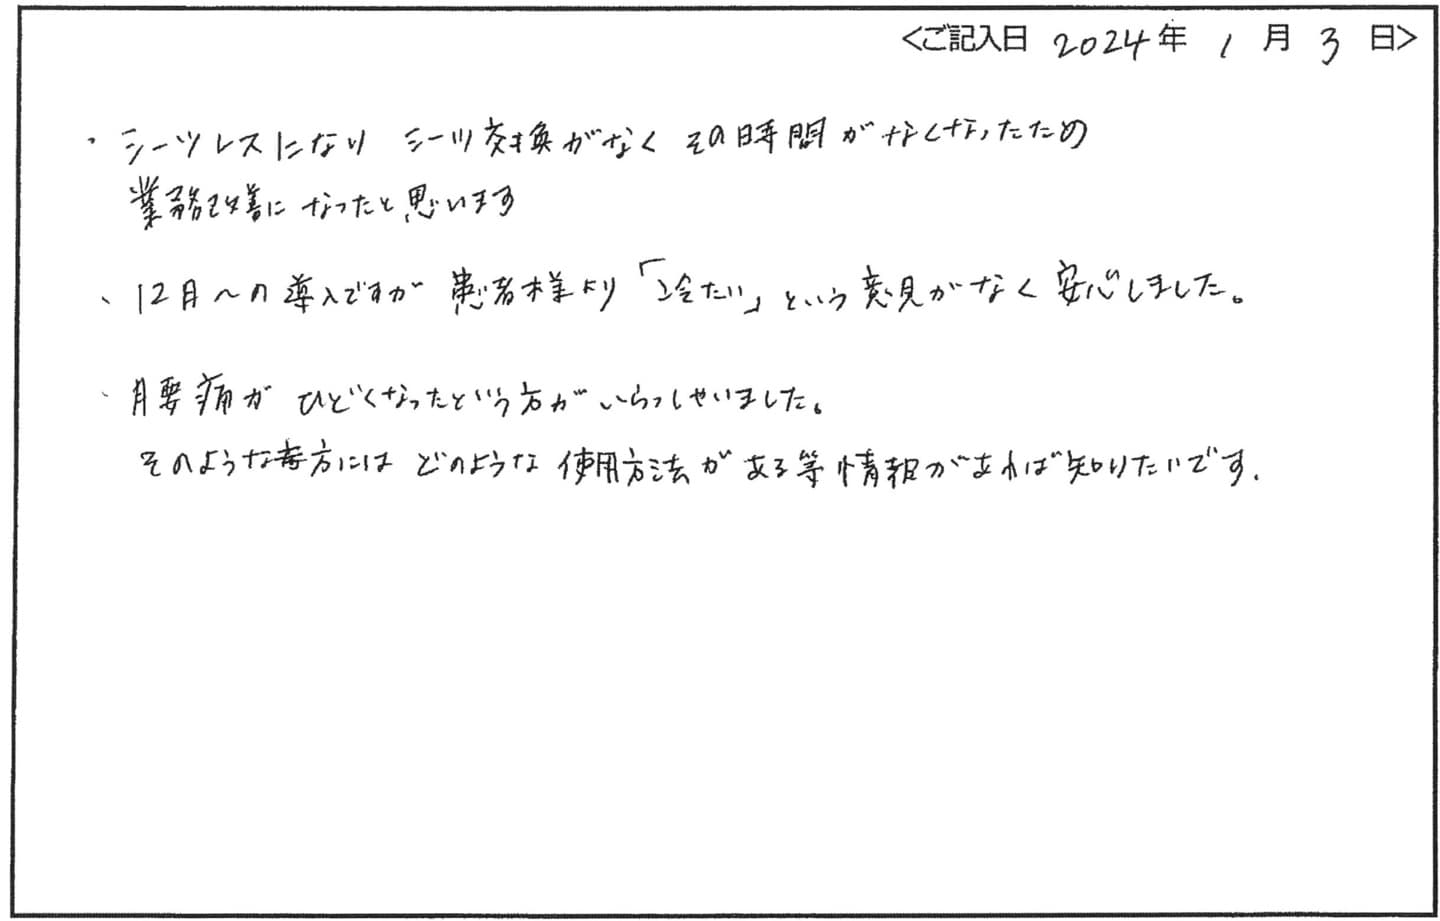 <ご記入日 2024年 1月 3日>
・シーツレスになり シーツ交換がなく その時間がなくなったため
業務改善になったと思います
・12月〜の導入ですが 患者様より「冷たい」という意見がなく 安心しました。
・腰痛が ひどくなったという方が いらっしゃいました。
そのような方には どのような 使用方法が ある等 情報があれば 知りたいです.